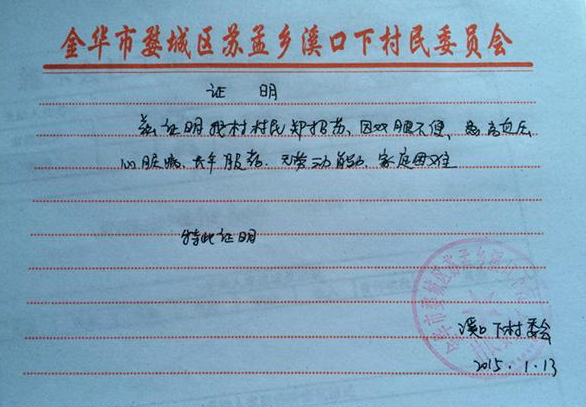 金华市婺城区苏孟乡溪口下村民委员会
证 明
兹证明我村村民郑招苏、因双腿不便、患高血压
心脏病、长年服药、无劳动能力、家庭困难
特此证明
溪口下村委会
2015.1.13